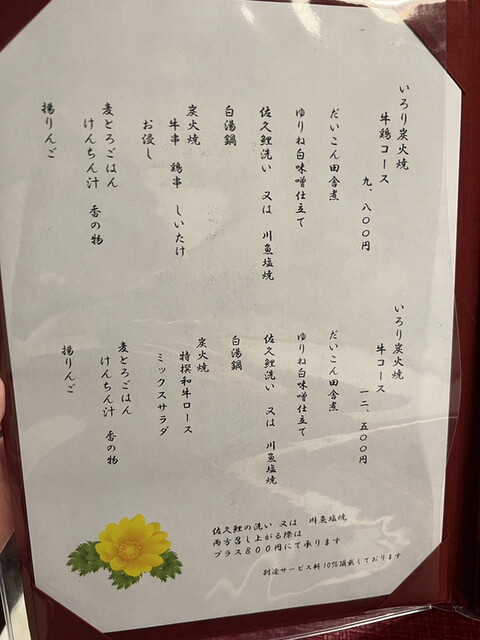 いろり炭火焼
牛鶏コース
九、八〇〇円
だいこん田舎煮
ゆりね白味噌仕立て
佐久鯉洗い 又は 川魚塩焼
白湯鍋
炭火焼
牛串 鶏串 しいたけ
お浸し
麦とろごはん
けんちん汁 香の物
揚りんご
いろり炭火焼
牛コース
一二、五〇〇円
だいこん田舎煮
ゆりね白味噌仕立て
佐久鯉洗い 又は 川魚塩焼
白湯鍋
炭火焼
特撰和牛ロース
ミックスサラダ
麦とろごはん
けんちん汁 香の物
揚りんご
佐久鯉の洗い 又は 川魚塩焼
両方召し上がる際は
プラス800円にて承ります
別途サービス料10%頂戴しております